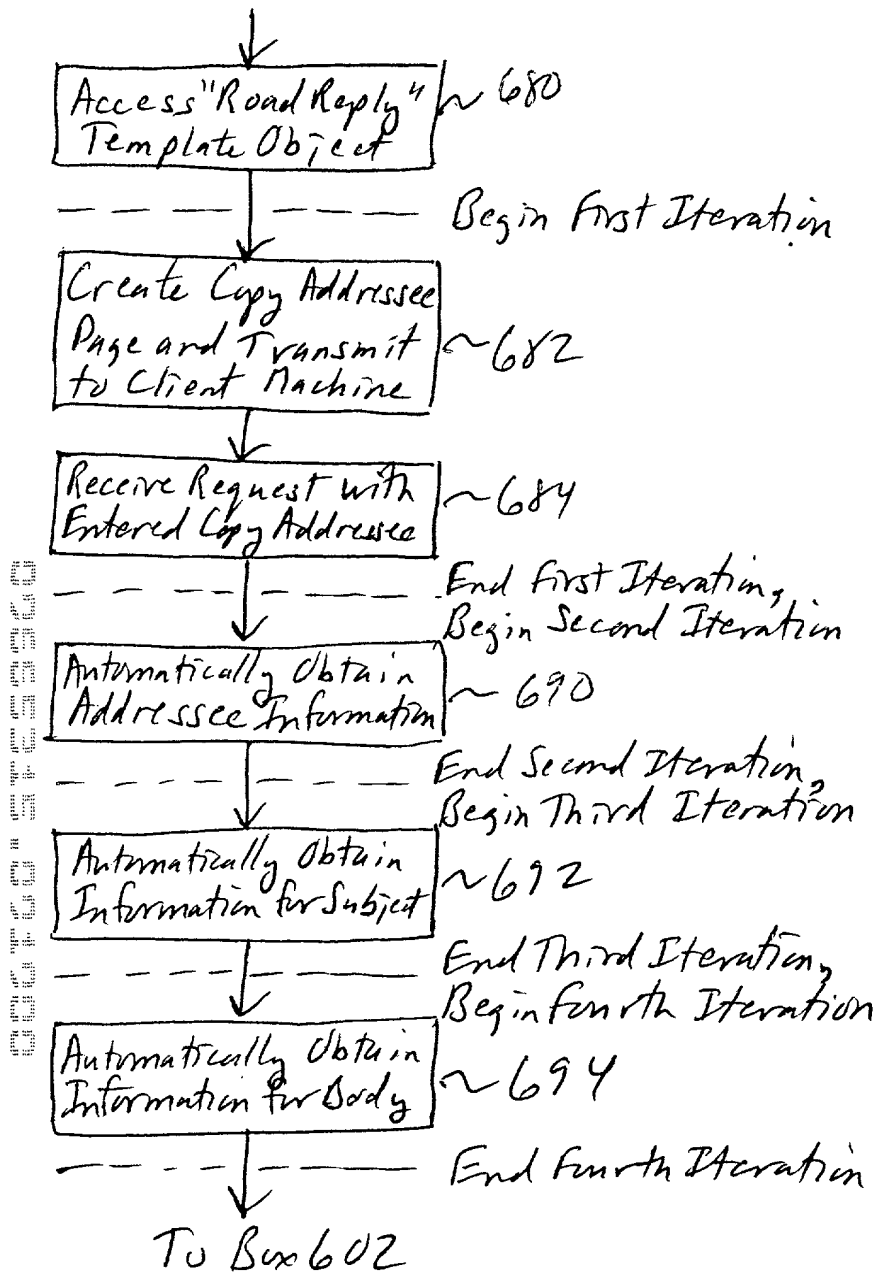 Access "Road Reply"
Template Object
~ 680
Begin First Iteration
Create Copy Addressee
Page and Transmit
to Client Machine
~682
Receive Request with
Entered Copy Addressee
~684
End First Iteration,
Begin Second Iteration
Automatically Obtain
Addressee Information
~ 690
End Second Iteration,
Begin Third Iteration
Automatically Obtain
Information for Subject
~692
End Third Iteration,
Begin Fourth Iteration
Automatically Obtain
Information for Body
~694
End Fourth Iteration
To Box 602